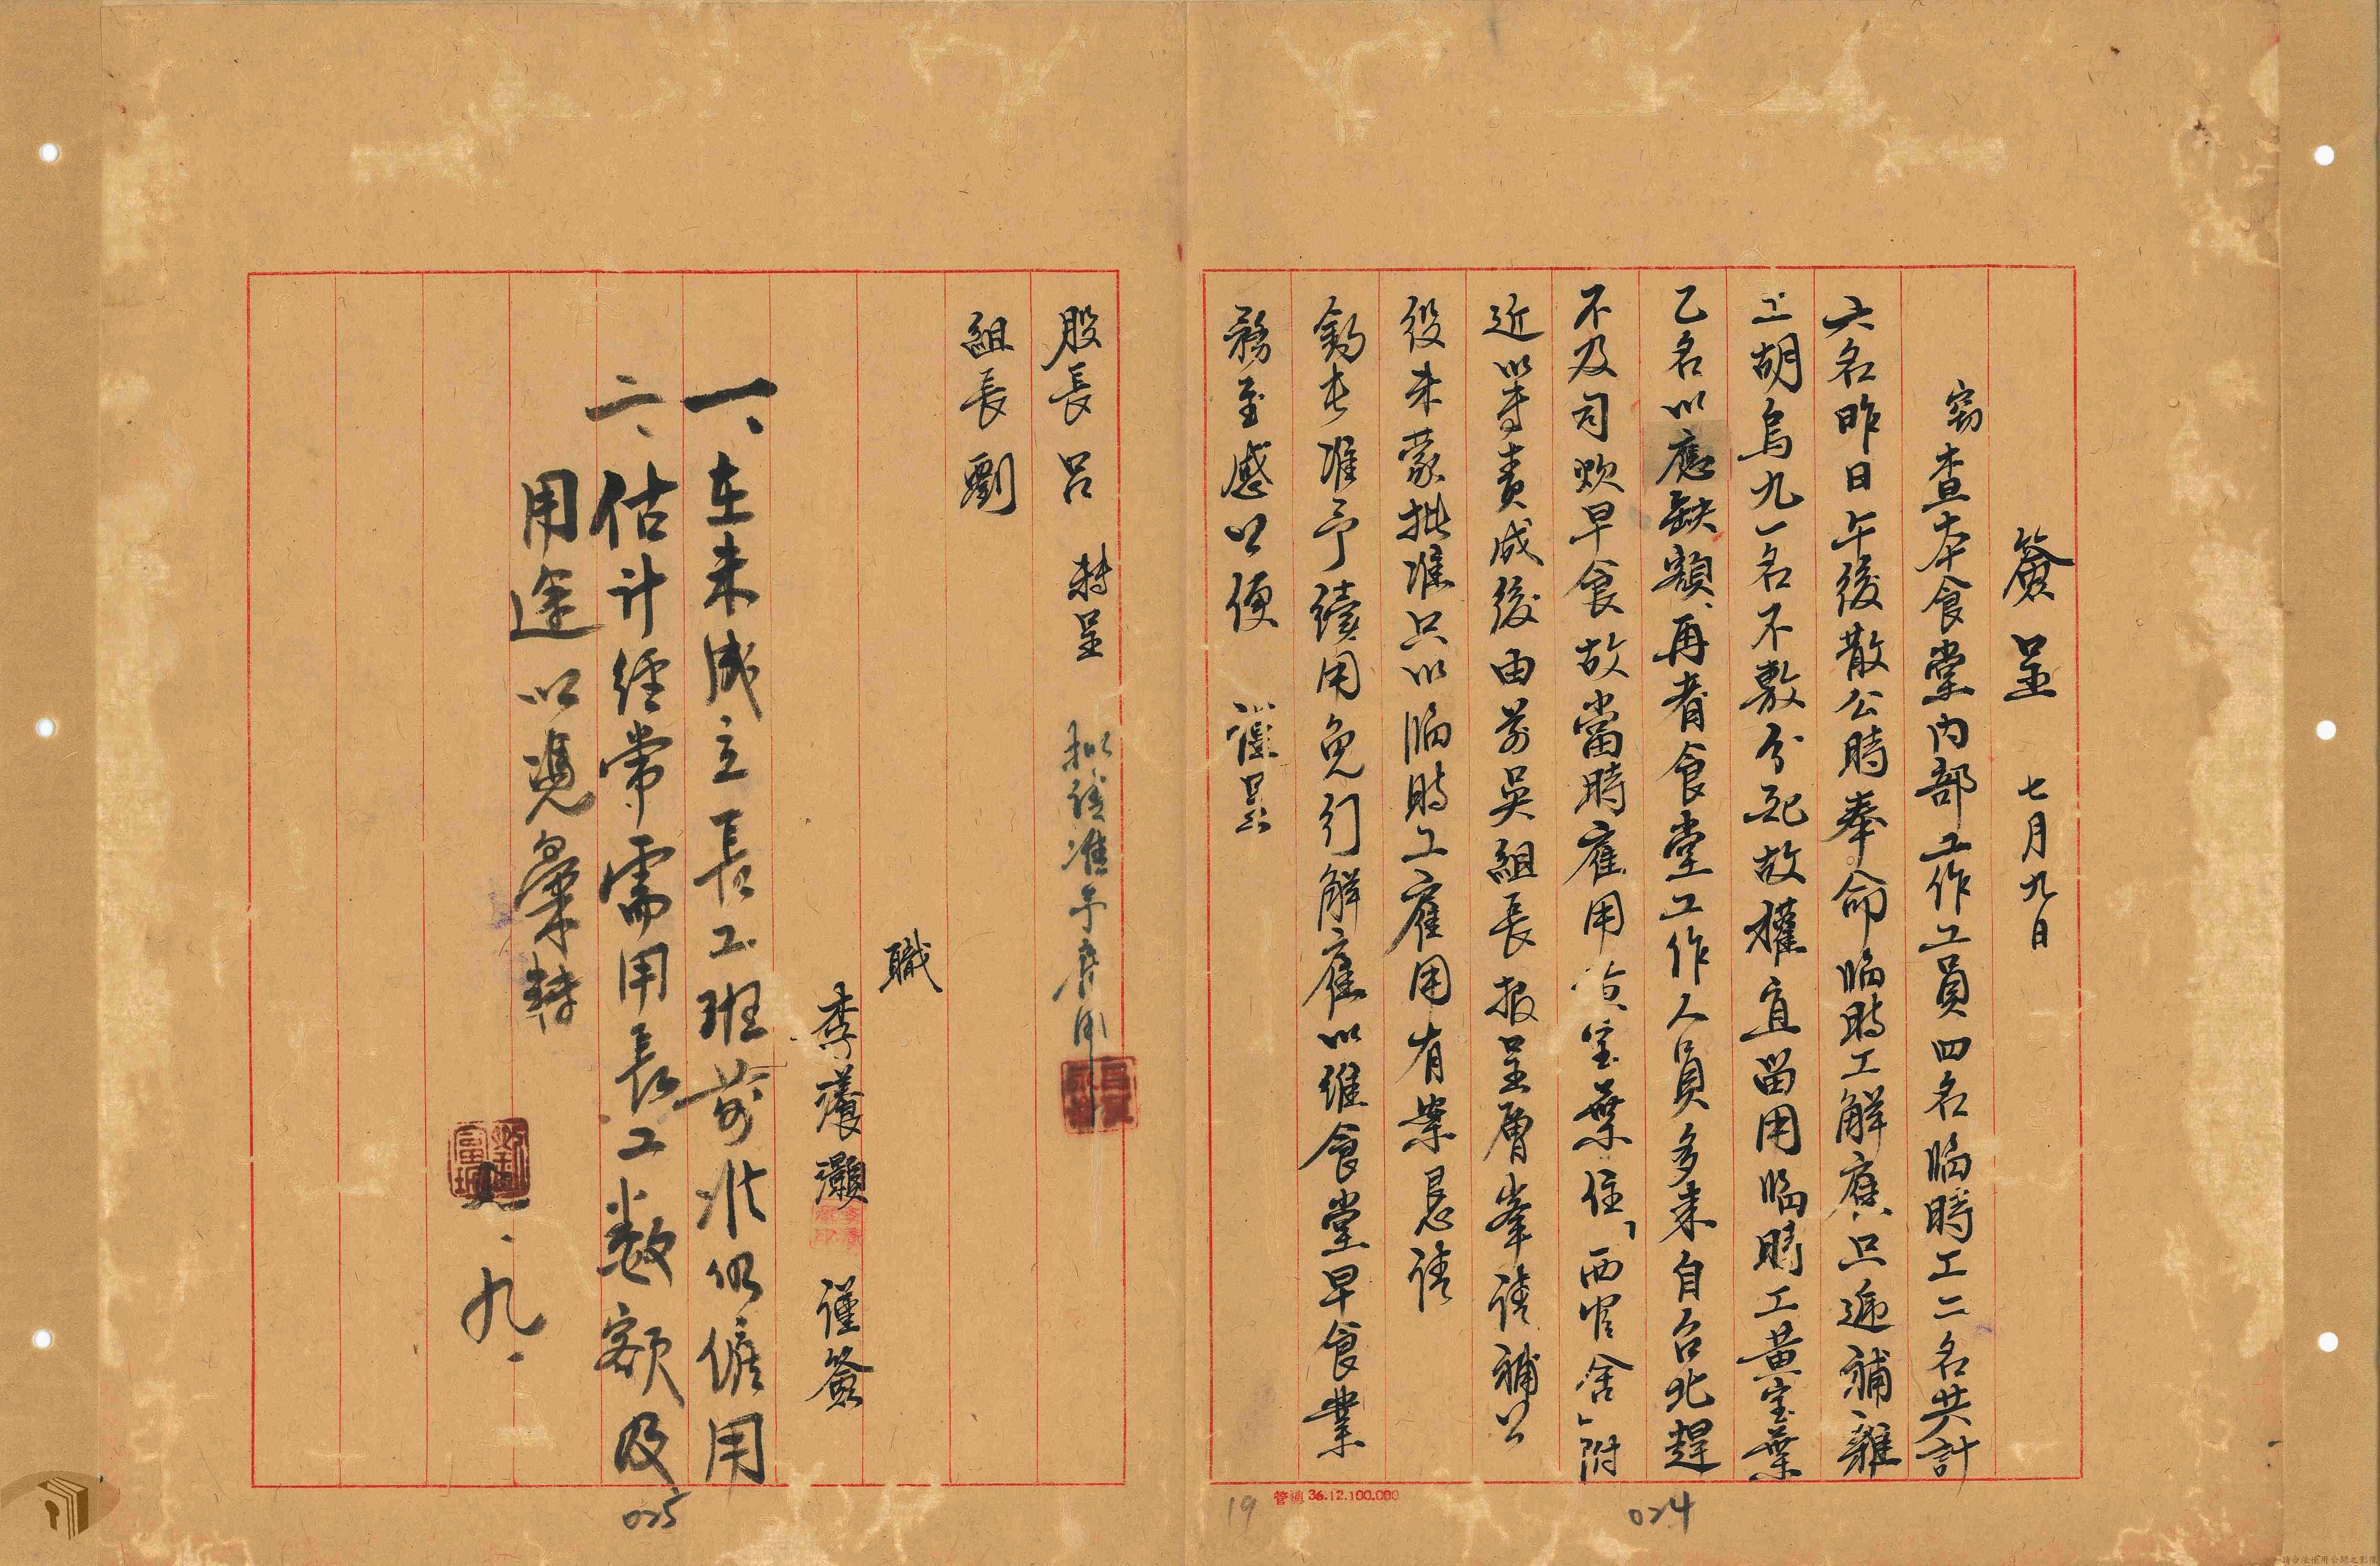 簽呈　七月九日
竊查本食堂內部工作工員四名臨時工二名共計
六名昨日午後散公時奉命臨時工解雇只遞補雜
工胡烏九一名不敷分配故權宜留用臨時工黃宝葉
乙名以應缺額、再者食堂工作人員多来自台北趕
不及司炊早食故當時雇用黃宝葉住「西宿舍」附
近以專責成後由前吳組長报呈層峯請補公
役未蒙批准只以臨時工雇用有案懇請
鈞長准予續用免行解雇以維食堂早食業
務至感公便　謹呈
股長呂　轉呈
擬請准予雇用
組長劉
職
李瀁灝　謹簽
一、在未成立長工班前准仍僱用
二、估计經常需用長工数额及
用途以憑彙轉
九．
劉
富
025
024
19
管總 36.12.100.000